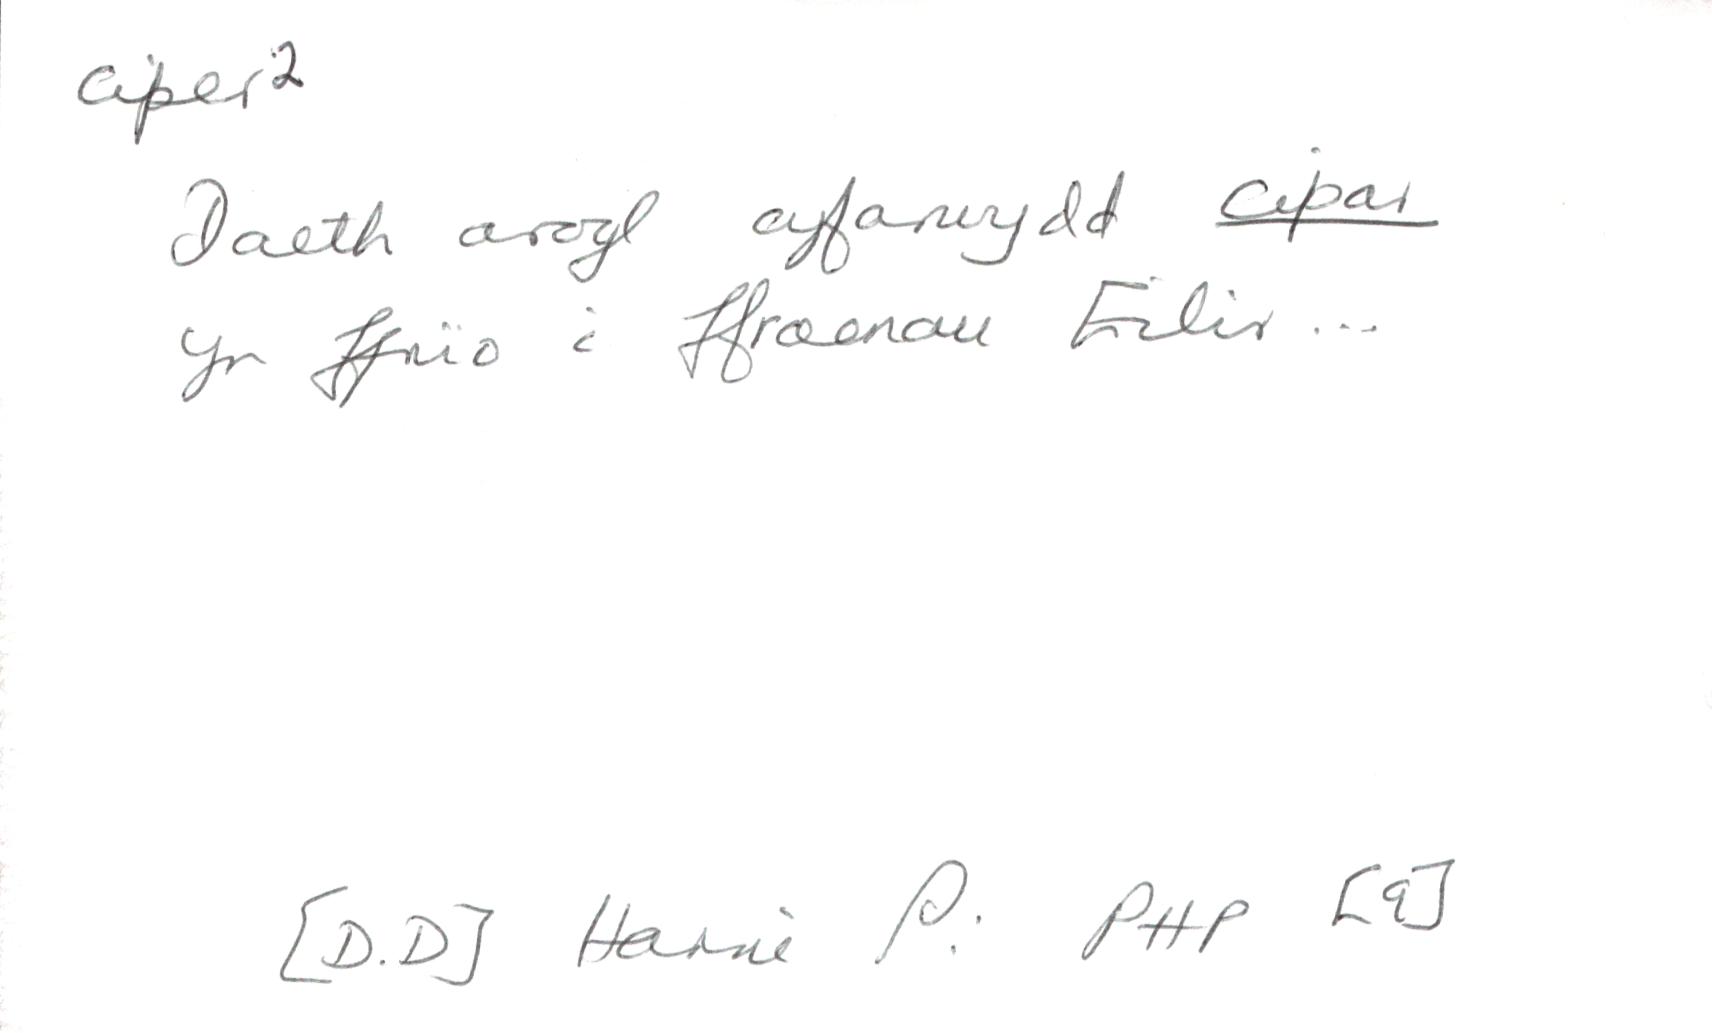 ciper²
Daeth arogl cyfarwydd cipar
yr ffrïo i ffroenau Eilir ...
[D.D] Harri P: PHP [9]